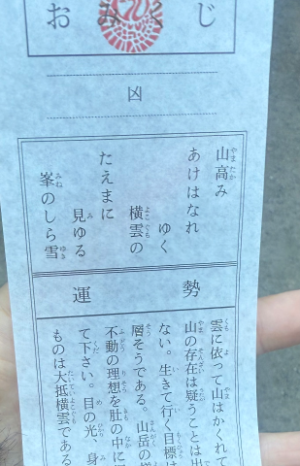 おみくじ
凶
山高み
あけはなれ
ゆく
横雲の
たえまに
見ゆる
峯のしら雪
運勢
雲に依って山はかくれて
山の存在は疑うことは出
ない。生きて行く目標は
層そうである。山岳の
不動の理想を肚の中に
て下さい。目の光、身
ものは大抵横雲である